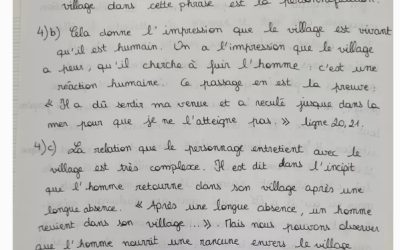 village dans cette phrase est la personnification.
4)b) Cela donne l'impression que le village est vivant
qu'il est humain. On a l'impression que le village
a peur, qu'il cherche à fuir l'homme : c'est une
réaction humaine. Ce passage en est la preuve :
« Il a dû sentir ma venue et a reculé jusque dans la
mer pour que je ne l'atteigne pas. » ligne 20,21.
4)c) La relation que le personnage entretient avec le
village est très complexe. Il est dit dans l'incipit
que l'homme retourne dans son village après une
longue absence. « Après une longue absence, un homme
revient dans son village ... ». Mais nous pouvons observer
que l'homme nourrit une rancune envers le village